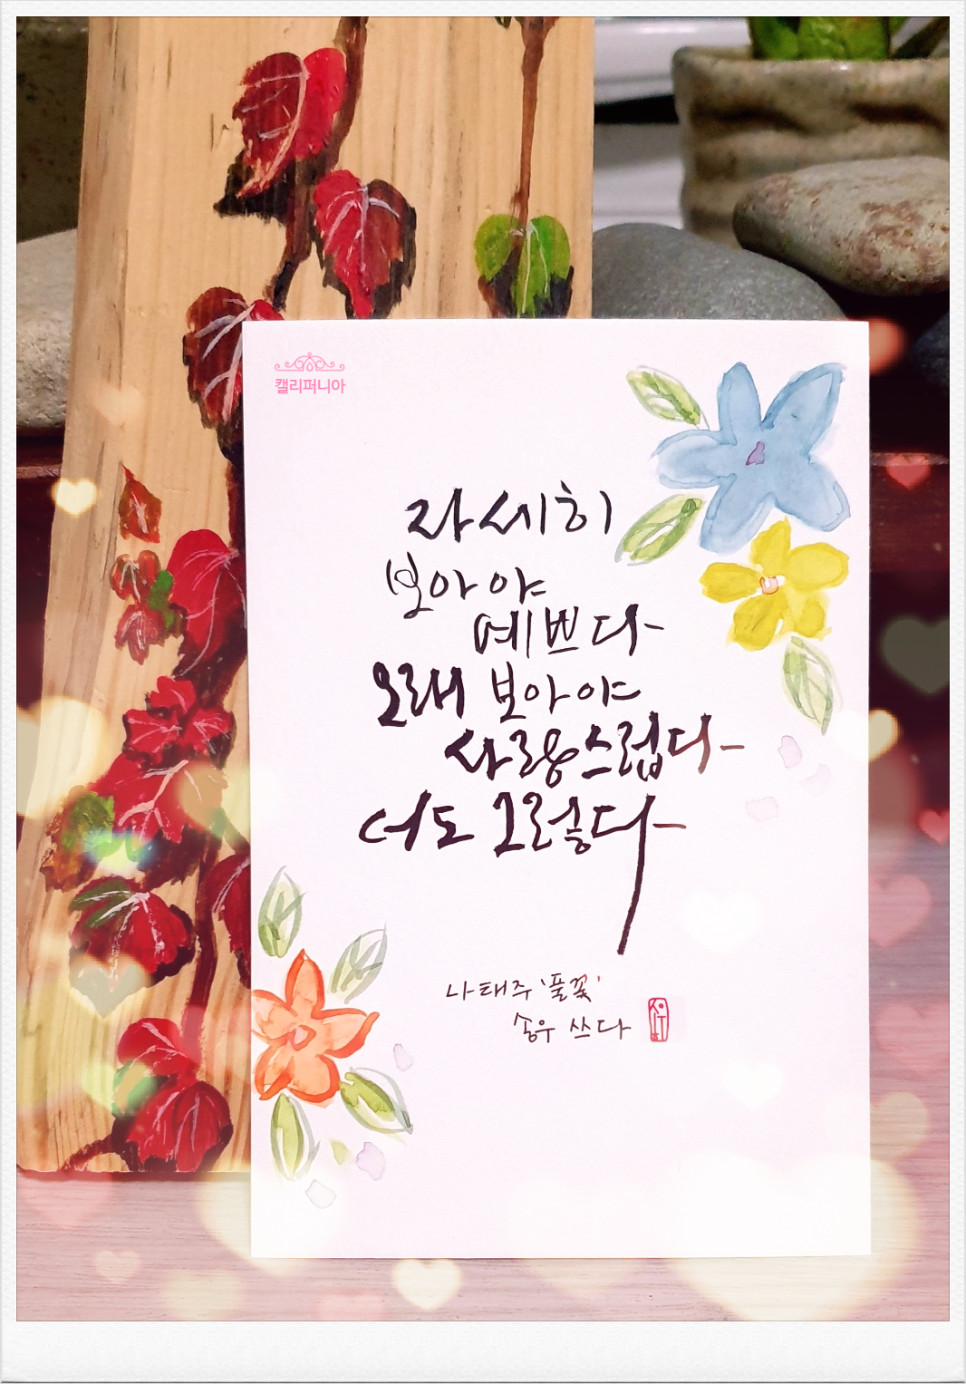 캘리퍼니아
자세히
보아야
예쁘다
오래 보아야
사랑스럽다
너도 그렇다
나태주 '풀꽃'
송우 쓰다